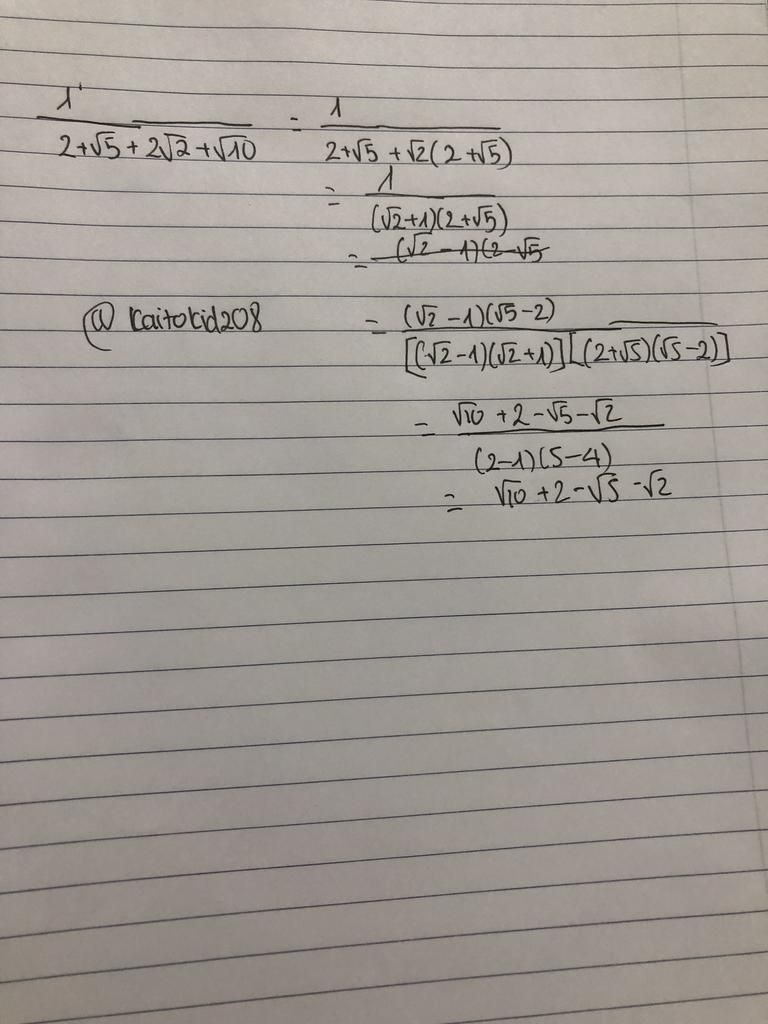 1/(2+√5+2√2+√10) = 1/(2+√5+√2(2+√5))
= 1/((√2+1)(2+√5))
= (√2-1)(2-√5
@kaitokid208 = (√2-1)(√5-2)/([(√2-1)(√2+1)][(2+√5)(√5-2)])
= (√10+2-√5-√2)/((2-1)(5-4))
= √10+2-√5-√2